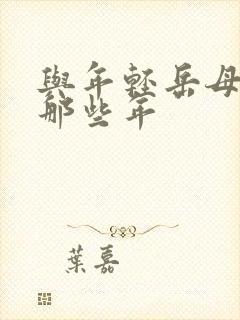 與年輕岳母
那些年
葉嘉